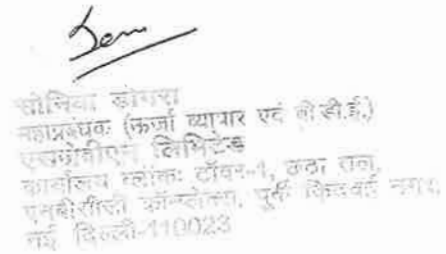 सोनिया डोगरा
महाप्रबंधक (ऊर्जा व्यापार एवं बी.डी.ई.)
एसजेवीएन लिमिटेड
कार्यालय ब्लॉक: टॉवर-1, छठा तल,
एनबीसीसी कॉम्प्लेक्स, पूर्वी किदवई नगर,
नई दिल्ली-110023